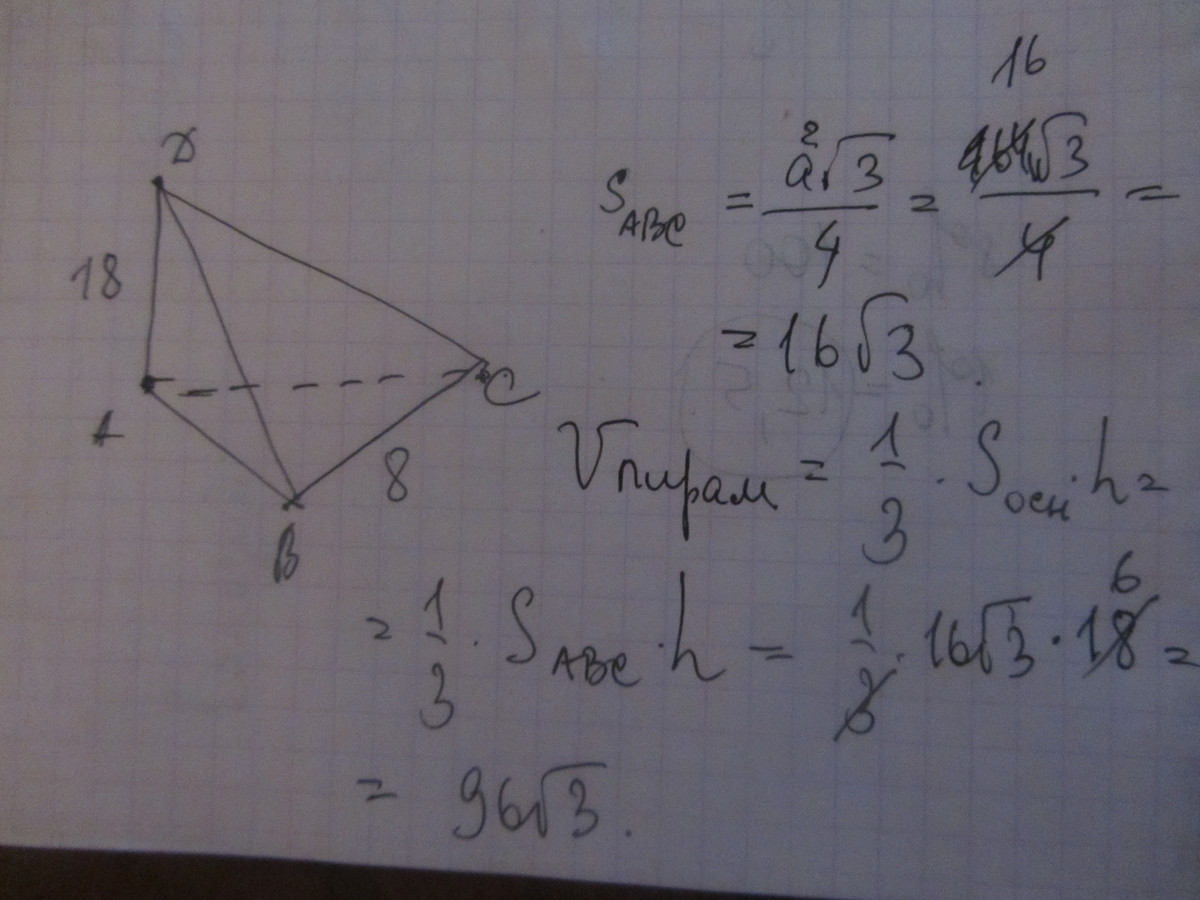 D
18
A
B
8
C
16
S_ABC = a²√3/4 = 64√3/4 =
= 16√3.
Vпирам = 1/3 · Sосн · h =
= 1/3 · S_ABC · h = 1/3 · 16√3 · 18 =
6
= 96√3.